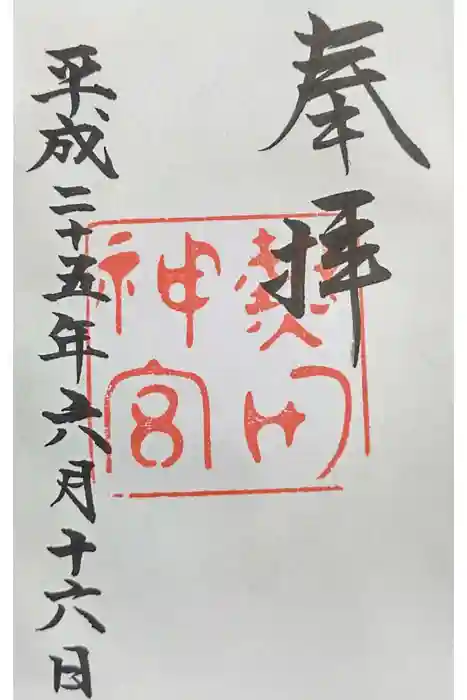 奉拝
熱田
神宮
平成二十五年六月十六日